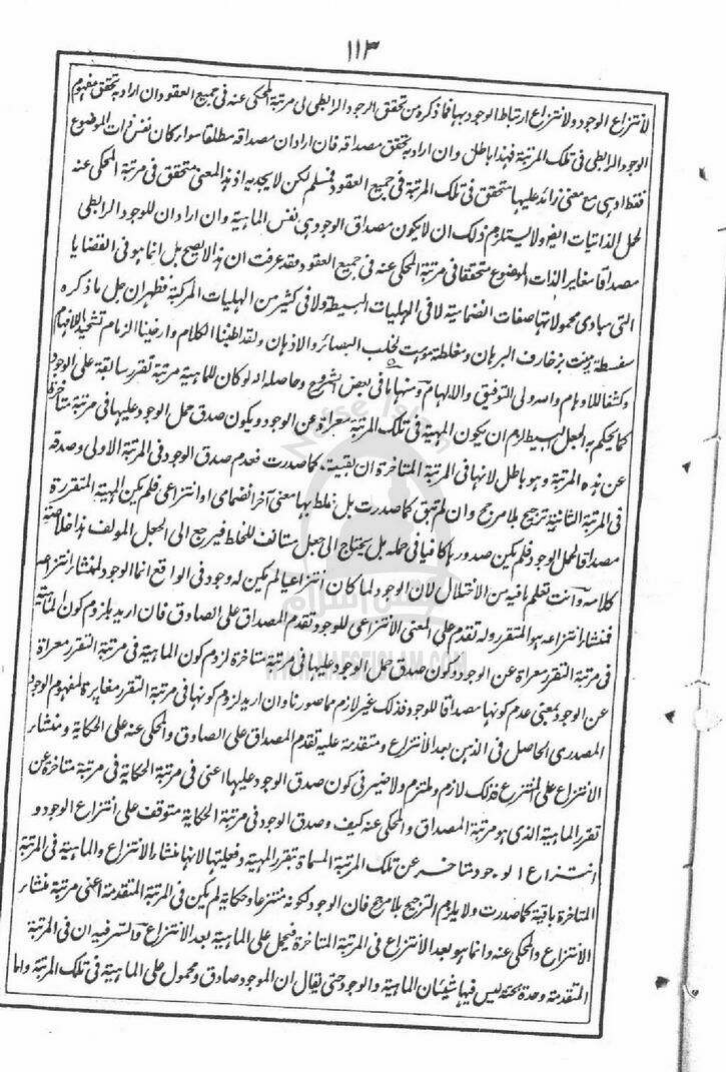 ١١٣
لانتزاع الوجود ولانتزاع ارتباط الوجود بها فما ذكره من تحقق الوجود الرابطى فى مرتبة المحكى عنه فى جميع العقود ان اراد به تحقق مفهوم
الوجود الرابطى فى تلك المرتبة فهذا باطل وان اراد به تحقق مصداقه فان اراد ان مصداقه مطلقا سواء كان نفس ذات الموضوع
فقط او هى مع معنى زائد عليها متحقق فى تلك المرتبة فى جميع العقود فمسلم لكن لا يجديه اذ هذا المعنى متحقق فى مرتبة المحكى عنه
لحمل الذاتيات ايضا ولا يستلزم ذلك ان لا يكون مصداق الوجود هى نفس الماهية وان اراد ان للوجود الرابطى
مصداقا مغاير الذات الموضوع متحققا فى مرتبة المحكى عنه فى جميع العقود فقد عرفت ان هذا لا يصح بل انما هو فى القضايا
التى مبادى محمولاتها صفات انضمامية لا فى الهليات البسيطة ولا فى كثير من الهليات المركبة فظهر ان جل ما ذكره
سفسطة زينت بزخارف البرهان ومغلطة موهت لخلب البصائر والاذهان ولقد اطنبنا الكلام وارخينا الزمام تشحيذا للافهام
وكشفا للاوهام والله ولى التوفيق والالهام ومنها ما فى بعض الشروح وحاصله انه لو كان للماهية مرتبة تقرر سابقة على الوجود
كما يحكم به الجعل البسيط لزم ان يكون المهية فى تلك المرتبة معراة عن الوجود ويكون صدق حمل الوجود عليها فى مرتبة متاخرة
عن هذه المرتبة وهو باطل لانها فى المرتبة المتاخرة ان بقيت كما صدرت فعدم صدق الوجود فى المرتبة الاولى وصدقه
فى المرتبة الثانية ترجيح بلا مرجح وان لم تبق كما صدرت بل خلط بها معنى آخر انضمامى او انتزاعى فلم يكن المهية المتقررة
مصداقا لحمل الوجود فلم يكن صدورها كافيا فى حمله بل يحتاج الى جعل مستانف للخلط فيرجع الى الجعل المولف هذا خلاصة
كلامه وانت تعلم ما فيه من الاختلال لان الوجود لما كان انتزاعيا لم يكن له وجود فى الواقع انما الوجود لمنشأ انتزاعه
فمنشأ انتزاعه هو المتقرر وله تقدم على المعنى الانتزاعى للوجود تقدم المصداق على الصادق فان اريد بلزوم كون الماهية
فى مرتبة التقرر معراة عن الوجود وكون صدق حمل الوجود عليها فى مرتبة متاخرة لزوم كون الماهية فى مرتبة التقرر معراة
عن الوجود بمعنى عدم كونها مصداقا للوجود فذلك غير لازم مما صورنا وان اريد لزوم كونها فى مرتبة التقرر مغايرة لمفهوم الوجود
المصدرى الحاصل فى الذهن بعد الانتزاع ومتقدمة عليه تقدم المصداق على الصادق والمحكى عنه على الحكاية ومنشأ
الانتزاع على المنتزع فذلك لازم وملتزم ولا ضير فى كون صدق الوجود عليها اعنى فى مرتبة الحكاية فى مرتبة متاخرة عن
تقرر الماهية الذى هو مرتبة المصداق والمحكى عنه كيف وصدق الوجود فى مرتبة الحكاية متوقف على انتزاع الوجود و
انتزاع الوجود متاخر عن تلك المرتبة المسماة بتقرر المهية وفعليتها لانها منشأ الانتزاع والماهية فى المرتبة
المتاخرة باقية كما صدرت ولا يلزم الترجيح بلا مرجح فان الوجود لكونه منتزعا وحكاية لم يكن فى المرتبة المتقدمة اعنى مرتبة منشأ
الانتزاع والمحكى عنه وانما هو بعد الانتزاع فى المرتبة المتاخرة فيحمل على الماهية بعد الانتزاع والسر فيه ان فى المرتبة
المتقدمة وحدة بحتة ليس فيها شيئان الماهية والوجود حتى يقال ان الموجود صادق ومحمول على الماهية فى تلك المرتبة واما
Nafse Islam
نفس اسلام
WWW.NAFSEISLAM.COM